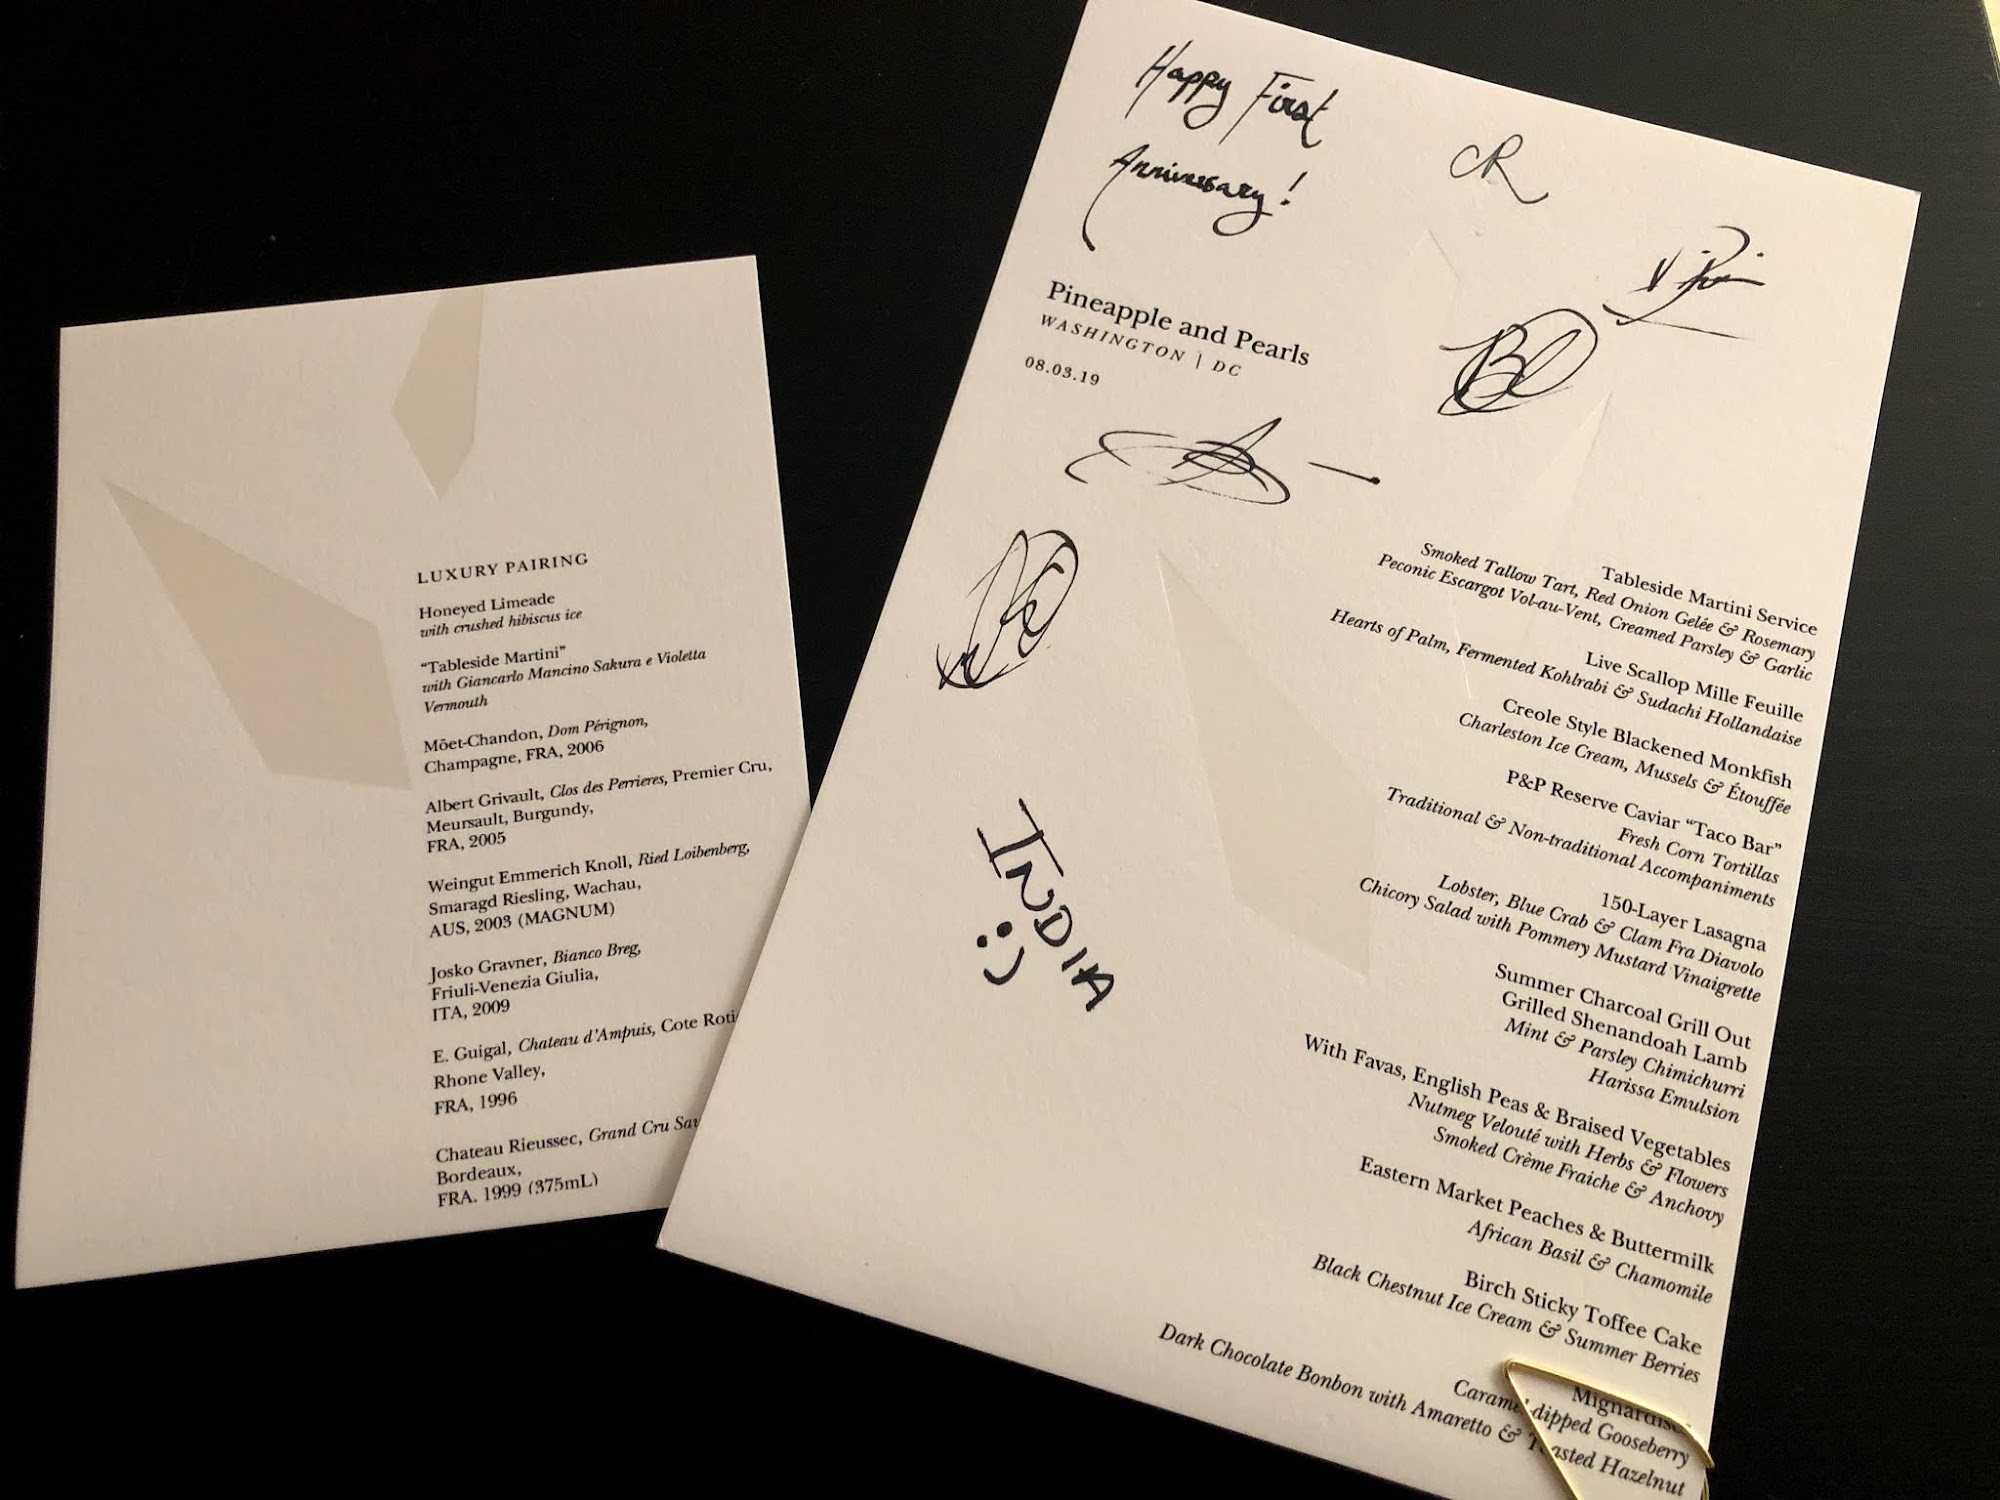 LUXURY PAIRING
Honeyed Limeade
with crushed hibiscus ice
“Tableside Martini”
with Giancarlo Mancino Sakura e Violetta
Vermouth
Mōet-Chandon, Dom Pérignon,
Champagne, FRA, 2006
Albert Grivault, Clos des Perrieres, Premier Cru,
Meursault, Burgundy,
FRA, 2005
Weingut Emmerich Knoll, Ried Loibenberg,
Smaragd Riesling, Wachau,
AUS, 2003 (MAGNUM)
Josko Gravner, Bianco Breg,
Friuli-Venezia Giulia,
ITA, 2009
E. Guigal, Chateau d’Ampuis, Cote Roti
Rhone Valley,
FRA, 1996
Chateau Rieussec, Grand Cru Sau
Bordeaux,
FRA. 1999 (375mL)
Happy First
Anniversary!
CR
Pineapple and Pearls
WASHINGTON | DC
08.03.19
INDIA
:)
Tableside Martini Service
Smoked Tallow Tart, Red Onion Gelée & Rosemary
Peconic Escargot Vol-au-Vent, Creamed Parsley & Garlic
Live Scallop Mille Feuille
Hearts of Palm, Fermented Kohlrabi & Sudachi Hollandaise
Creole Style Blackened Monkfish
Charleston Ice Cream, Mussels & Étouffée
P&P Reserve Caviar “Taco Bar”
Fresh Corn Tortillas
Traditional & Non-traditional Accompaniments
150-Layer Lasagna
Lobster, Blue Crab & Clam Fra Diavolo
Chicory Salad with Pommery Mustard Vinaigrette
Summer Charcoal Grill Out
Grilled Shenandoah Lamb
Mint & Parsley Chimichurri
Harissa Emulsion
With Favas, English Peas & Braised Vegetables
Nutmeg Velouté with Herbs & Flowers
Smoked Crème Fraiche & Anchovy
Eastern Market Peaches & Buttermilk
African Basil & Chamomile
Birch Sticky Toffee Cake
Black Chestnut Ice Cream & Summer Berries
Mignardise
Caramel-dipped Gooseberry
Dark Chocolate Bonbon with Amaretto & Toasted Hazelnut